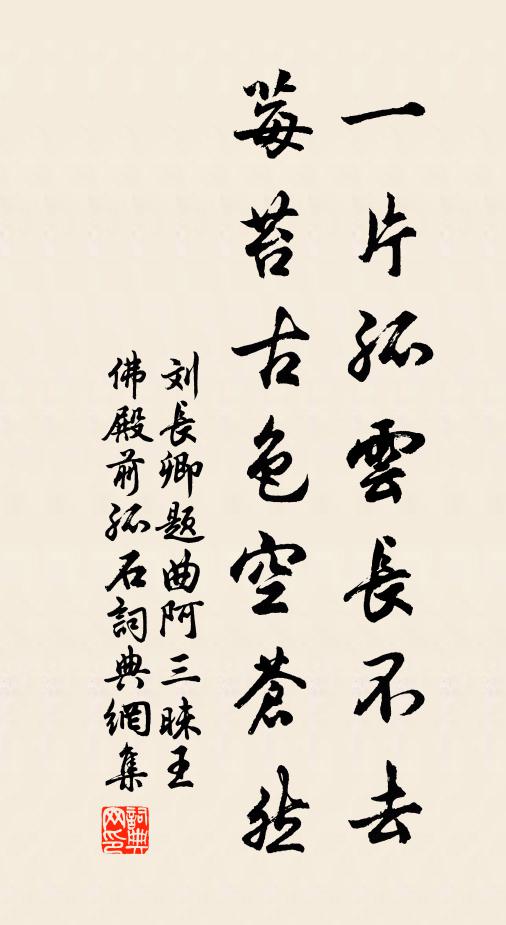 一片孤雲長不去
莓苔古色空蒼然
刘長卿题曲阿三昧王
佛殿前孤石詞典網集
詞典网印